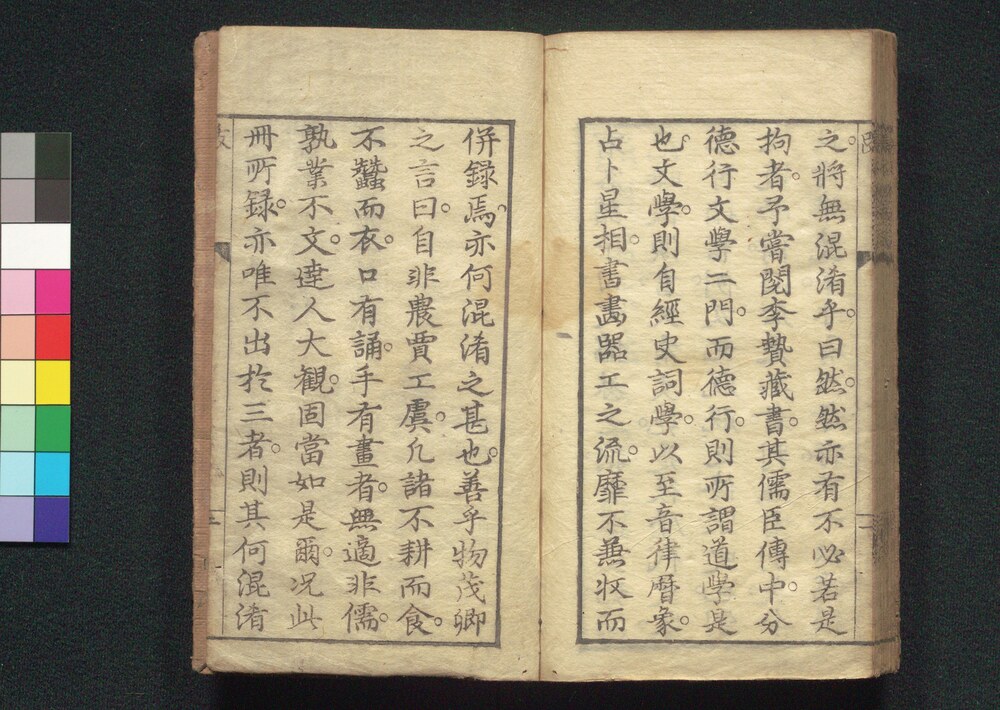 之。将無混淆乎。曰然。然亦有不必若是
拘者。予嘗閱李贄藏書。其儒臣傳中。分
德行文學二門。而德行。則所謂道學是
也。文學。則自經史詞學。以至音律暦象。
占卜星相。書畫器工之流。靡不兼收而
併録焉。亦何混淆之甚也。善乎物茂卿
之言曰。自非農賈工虞。凡諸不耕而食。
不蠶而衣。口有誦。手有畫者。無適非儒。
孰業不文。達人大観。固當如是爾。况此
冊所録。亦唯不出於三者。則其何混淆